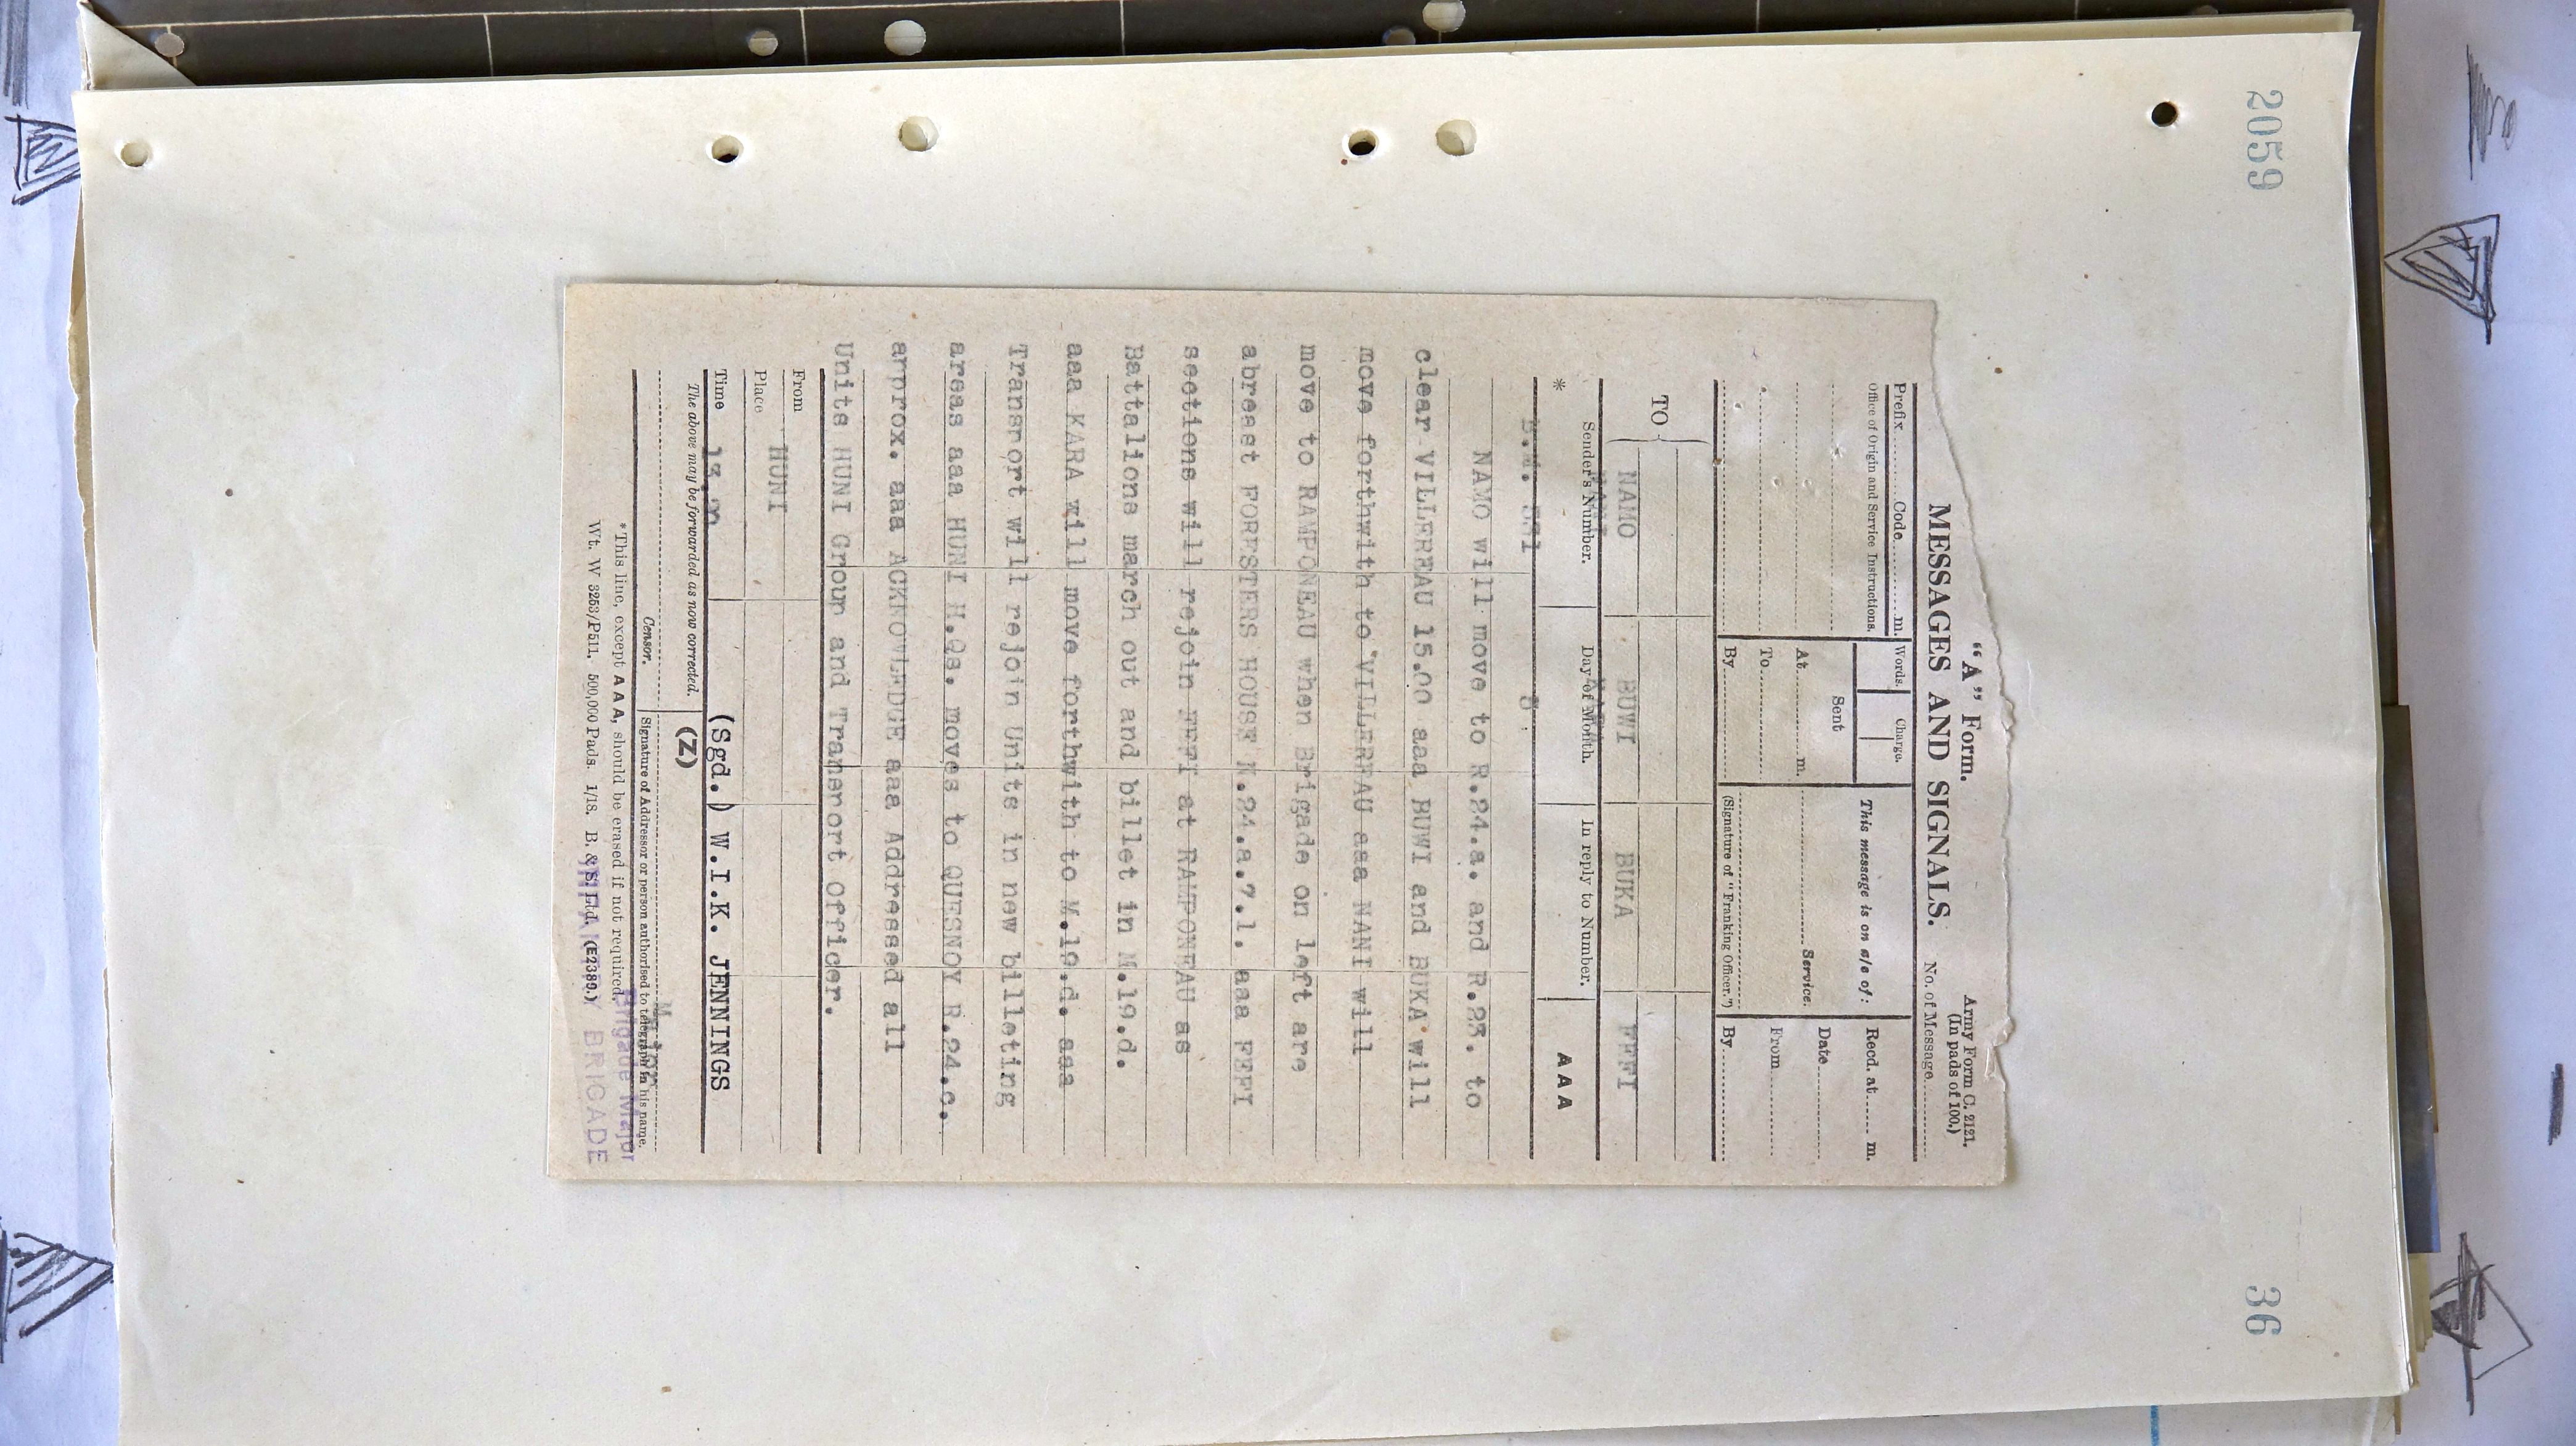 2059
36
"A" Form.
Army Form C. 2121.
(In pads of 100.)
MESSAGES AND SIGNALS.
No. of Message
Prefix Code m.
Words. Charge.
This message is on a/c of:
Recd. at m.
Office of Origin and Service Instructions.
Sent
Date
At m.
Service.
From
To
By
(Signature of "Franking Officer.")
By
TO
NAMO BUWI BUKA FEFI
Sender's Number. Day of Month. In reply to Number. AAA
*
NAMO will move to R.24.a. and R.23. to
clear VILLEREAU 15.00 aaa BUWI and BUKA will
move forthwith to VILLEREAU aaa NANI will
move to RAMPONEAU when Brigade on left are
abreast FORESTERS HOUSE aaa FEFI
sections will rejoin FEFI at RAMPONEAU as
Battalions march out and billet in M.19.d.
aaa KARA will move forthwith to M.19.d. aaa
Transport will rejoin Units in new billeting
areas aaa HUNI H.Qs. moves to QUESNOY R.24.c.
approx. aaa ACKNOWLEDGE aaa Addressed all
Units HUNI Group and Transport Officer.
From HUNI
Place
Time
(Sgd.) W.I.K. JENNINGS
The above may be forwarded as now corrected.
(Z)
Major
Censor.
Signature of Addressor or person authorised to telegraph in his name.
Brigade Major
*This line, except AAA, should be erased if not required.
Wt. W 3253/P511. 500,000 Pads. 1/18. B. & S. Ltd. (E2389.)
BRIGADE